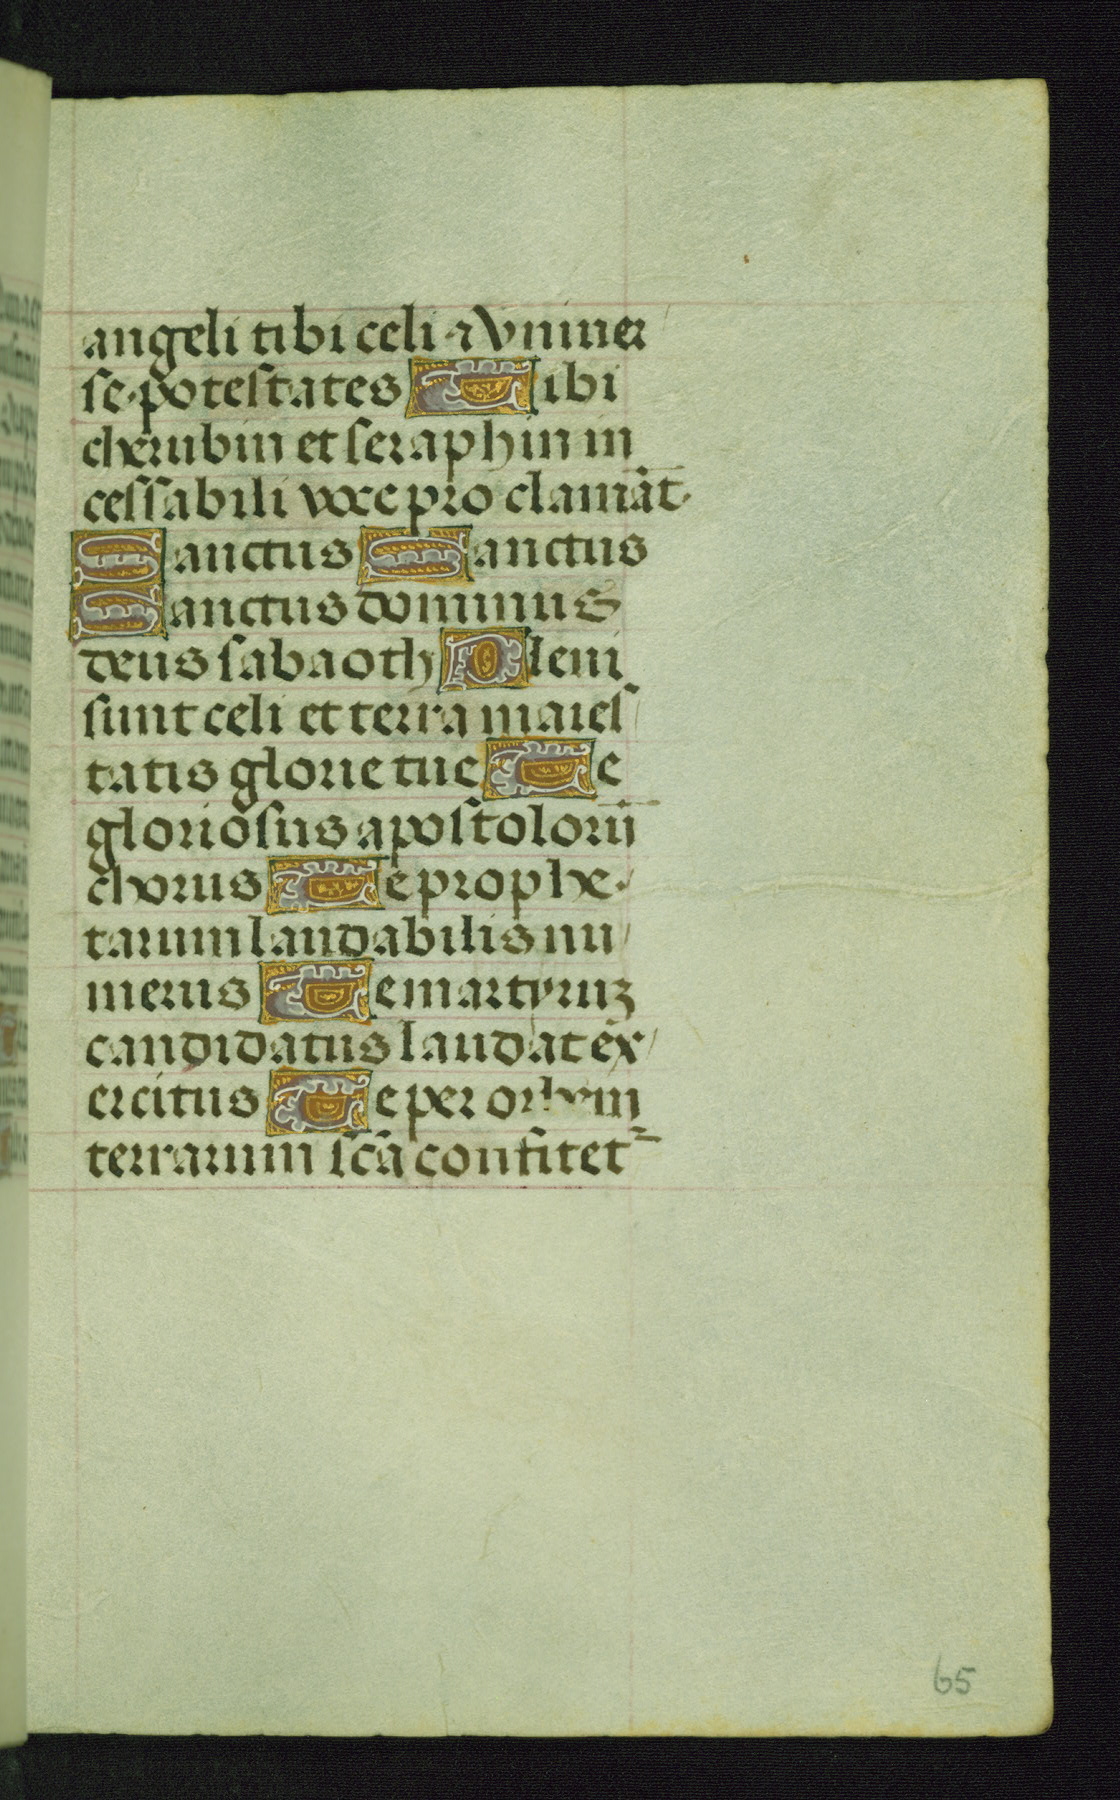 angeli tibi celi ⁊ Vniuer
se potestates Tibi
cherubin et seraphin in
cessabili voce pro clamāt
Sanctus Sanctus
Sanctus dominus
deus sabaoth Pleni
sunt celi et terra maies
tatis glorie tue Te
gloriosus apostolorū
chorus Te prophe
tarum laudabilis nu
merus Te martyruꝫ
candidatus laudat ex
ercitus Te per orbem
terrarum sc̄a confitetᷣ
65